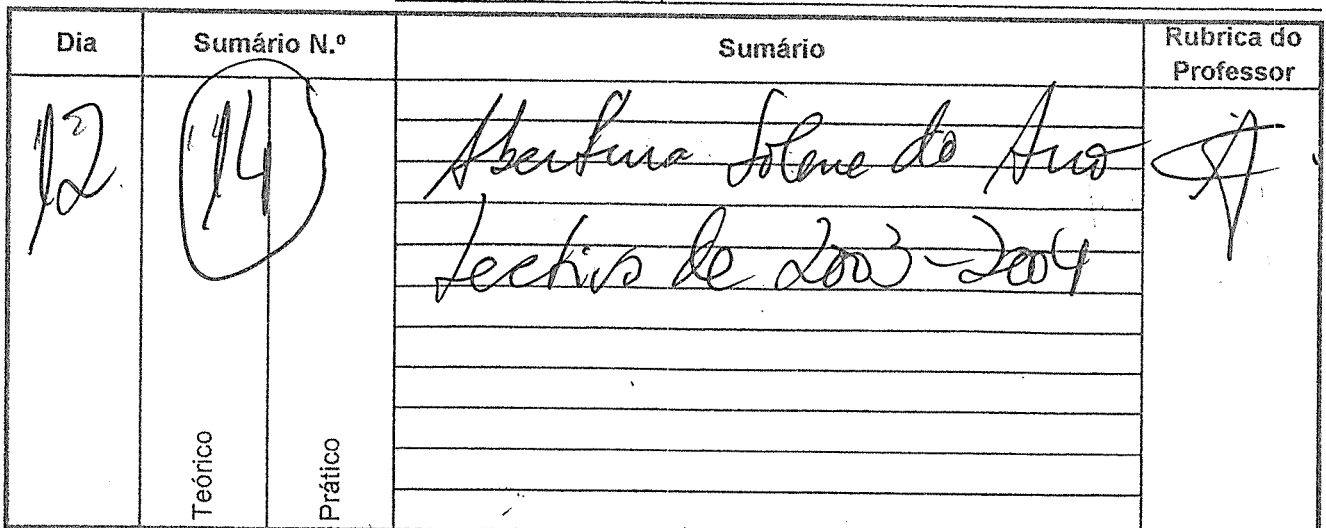 Dia Sumário N.º Sumário Rubrica do Professor
12 14 Abertura Solene do Ano
Lectivo de 2003-2004
Teórico Prático